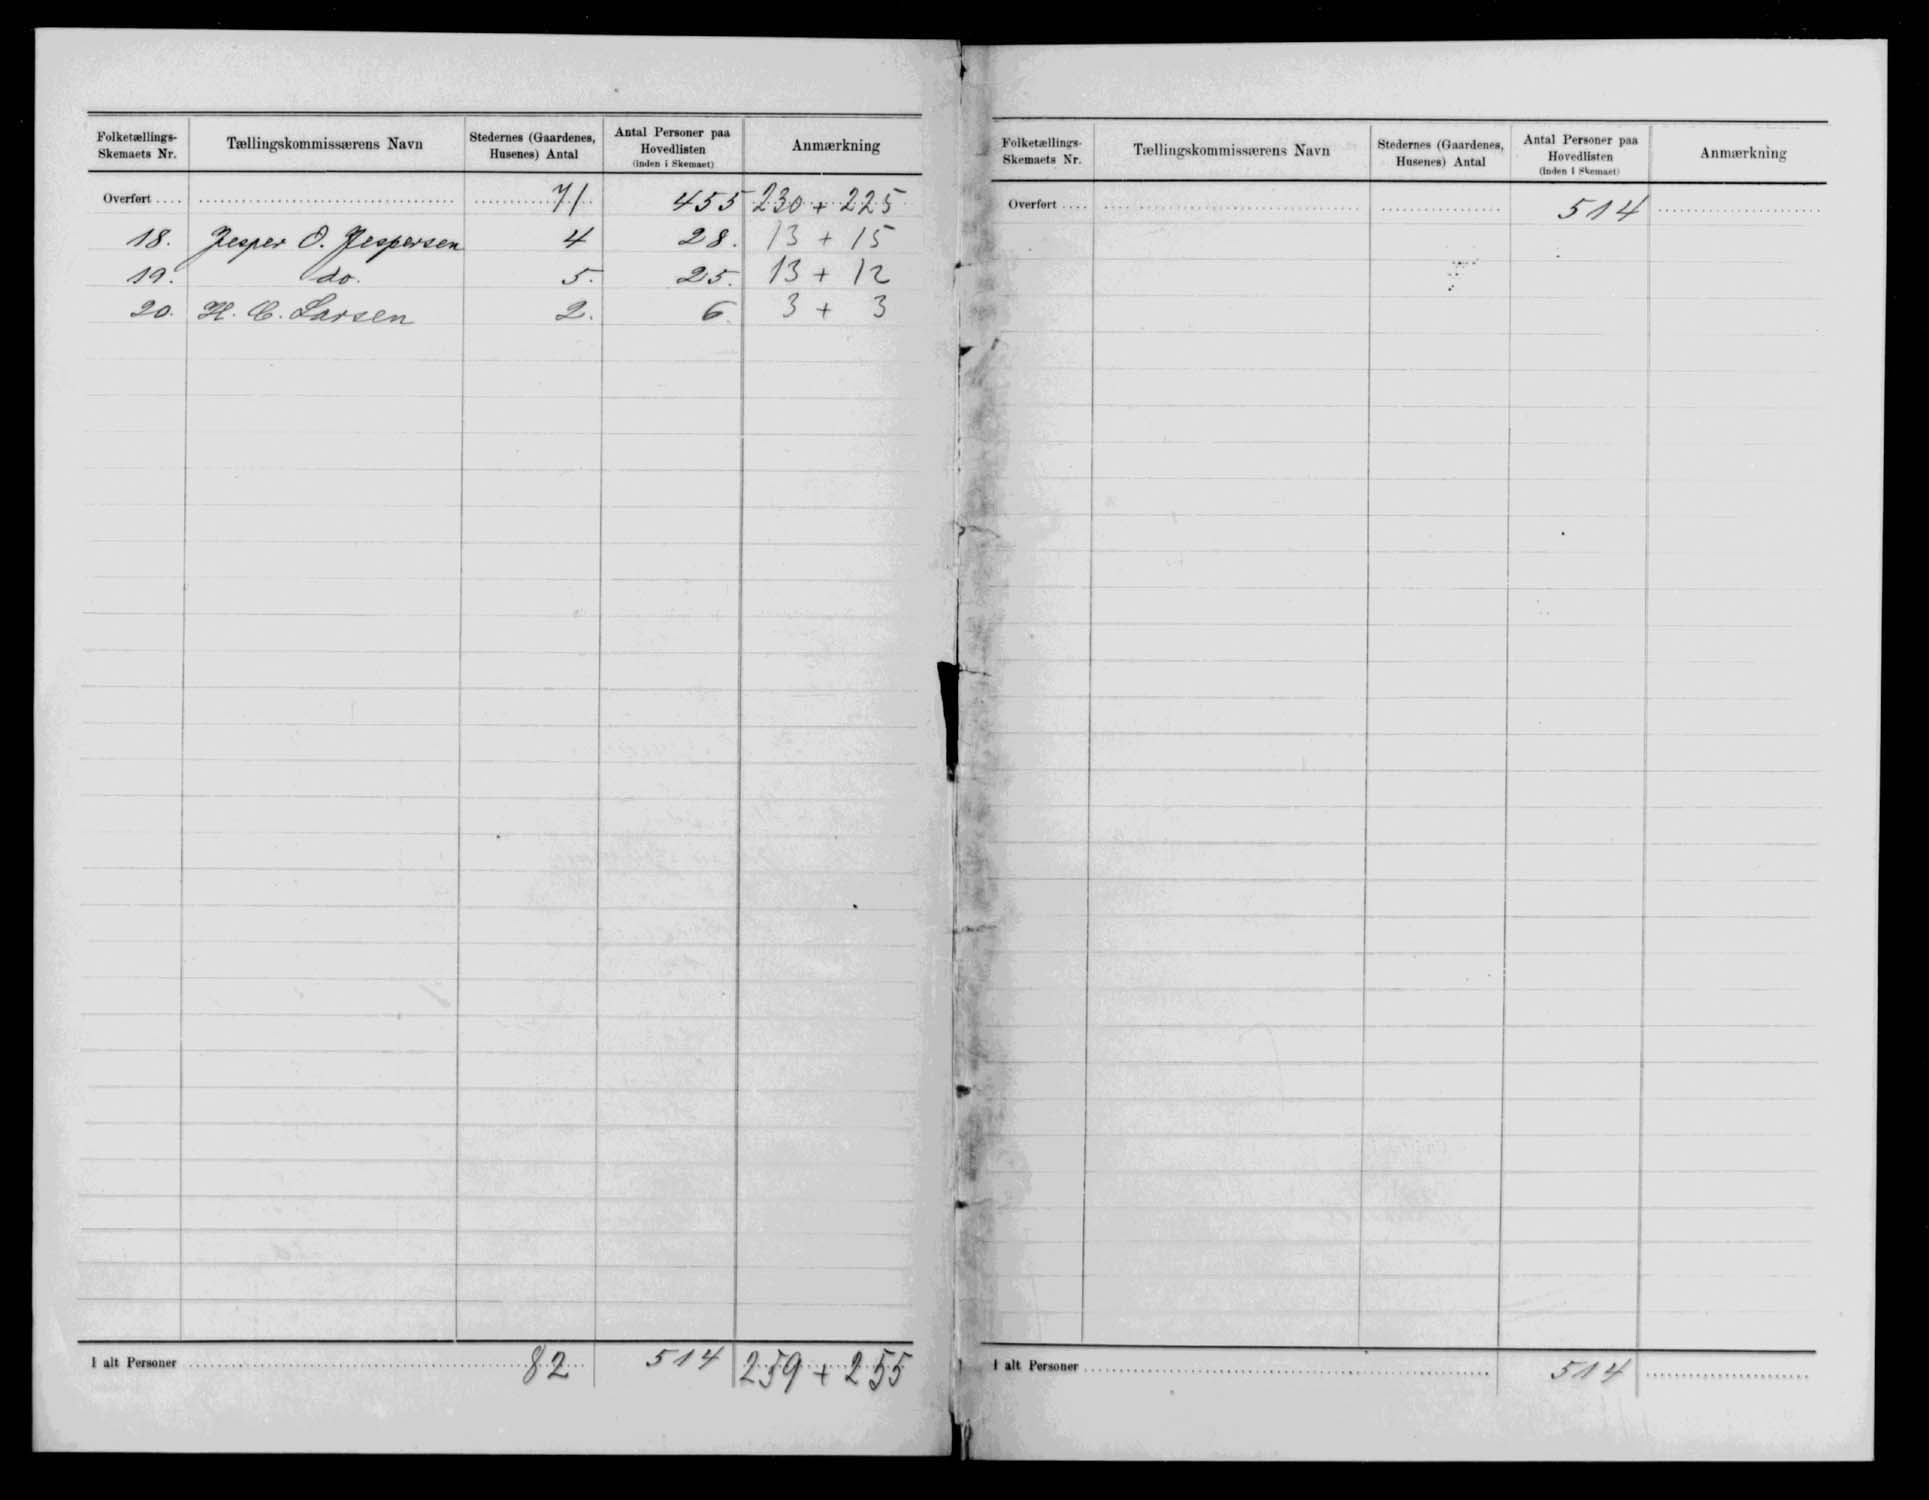 Folketællings-Skemaets Nr. Tællingskommissærens Navn Stedernes (Gaardenes, Husenes) Antal Antal Personer paa Hovedlisten (inden i Skemaet) Anmærkning
Overført .... 71 455 230 + 225
18. Jesper O. Jespersen 4 28. 13 + 15
19. do. 5. 25. 13 + 12
20. H. C. Larsen 2. 6. 3 + 3
I alt Personer 82 514 259 + 255
Folketællings-Skemaets Nr. Tællingskommissærens Navn Stedernes (Gaardenes, Husenes) Antal Antal Personer paa Hovedlisten (inden i Skemaet) Anmærkning
Overført .... 514
I alt Personer 514